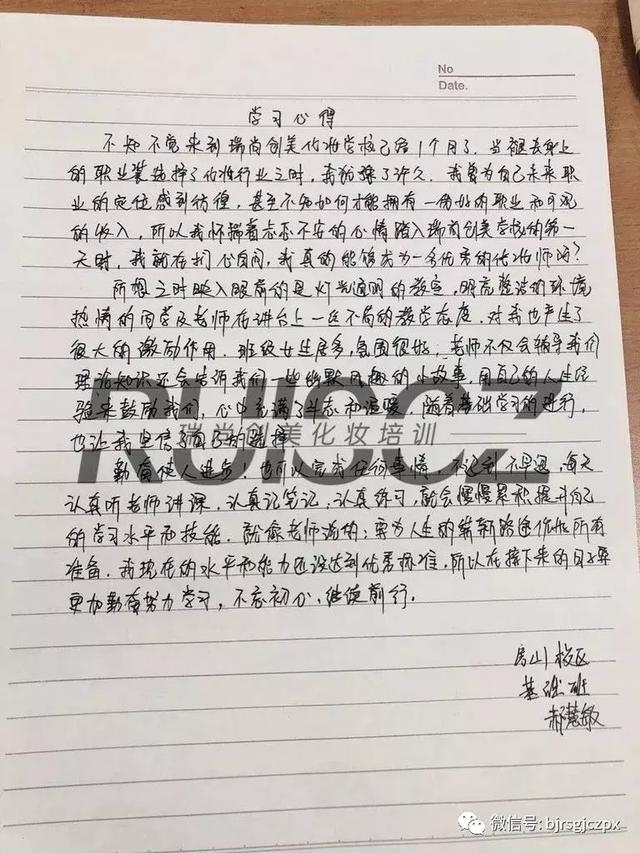 No
Date.
学习心得
不知不觉来到瑞尚创美化妆学校已经1个月了，当褪去身上
的职业装选择了化妆行业之时，我犹豫了许久。我曾为自己未来职
业的定位感到彷徨，甚至不知如何才能拥有一份好的职业和可观
的收入，所以我怀揣着忐忑不安的心情踏入瑞尚创美学校的第一
天时，我就在扪心自问，我真的能够成为一名优秀的化妆师吗？
所想之时映入眼帘的是灯光通明的教室，明亮整洁的环境
热情的同学及老师在讲台上一丝不苟的教学态度，对我也产生了
很大的激励作用。班级女生居多，氛围很好；老师不仅会辅导我们
理论知识还会告诉我们一些幽默风趣的小故事，用自己的人生经
验来鼓励我们，心中充满了斗志和温暖，随着基础学习的进行，
也让我坚信了自己的选择
勤奋使人进步！也可以完成任何事情，不迟到不早退，每天
认真听老师讲课，认真记笔记，认真练习，就会慢慢累积提升自己
的学习水平和技能，就像老师说的：要为人生的崭新路途做好所有
准备。我现在的水平和能力还没达到优秀标准，所以在接下来的日子要
更加勤奋努力学习，不忘初心，继续前行。
房山校区
基础班
郝慧敏
RUISCZ
瑞尚创美化妆培训
微信号: bjrsgjczpx